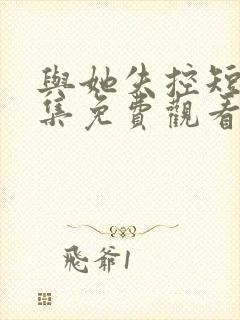 與她失控短
集免費觀看
飛爺1